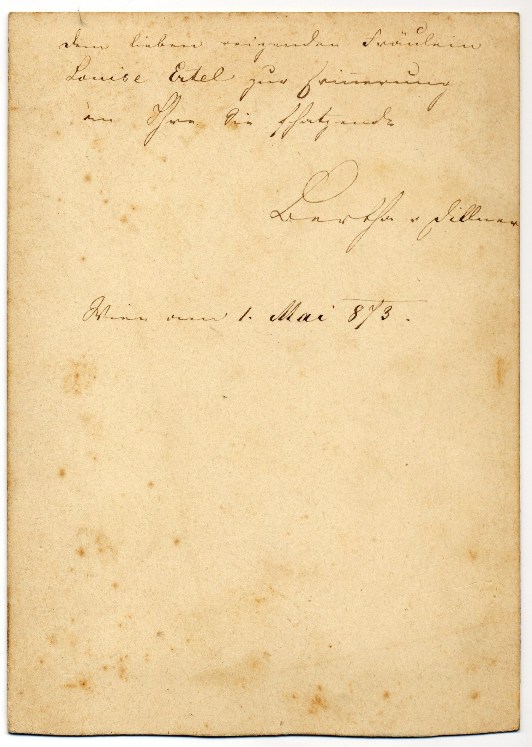 Dem lieben reizenden Fräulein
Louise Ertel zur Erinnerung
an Ihre Sie schätzende
Bertha v Dillner
Wien am 1. Mai 873.